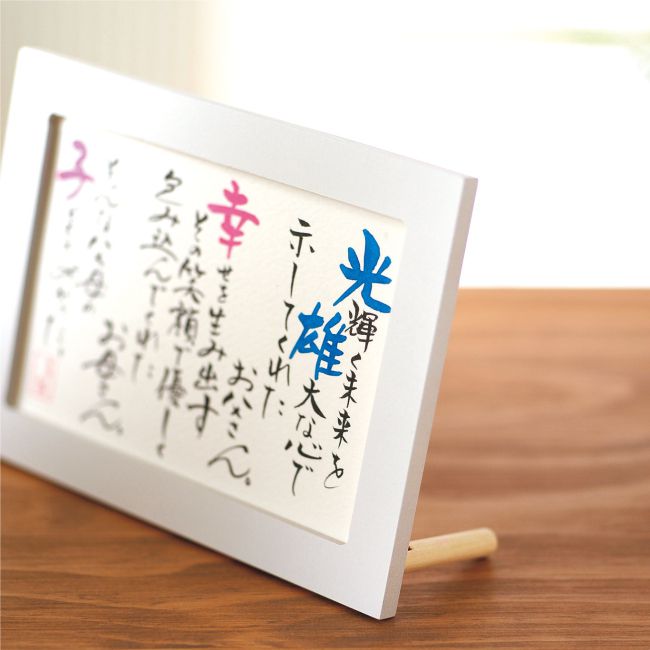 光輝く未来を
雄大な心で
示してくれた
お父さん。
幸せを生み出す
その笑顔で優しく
包み込んでくれた
お母さん。
そんな 母の
子